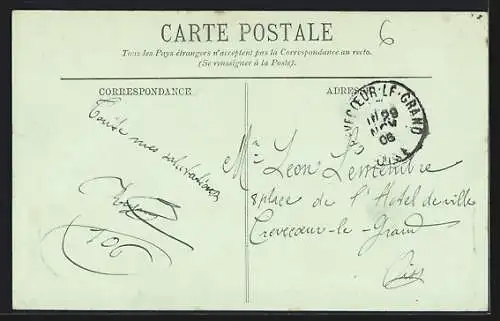 6
CARTE POSTALE
Tous les Pays étrangers n'acceptent pas la Correspondance au recto.
(Se renseigner à la Poste).
CORRESPONDANCE
ADRES
CREVECŒUR-LE-GRAND
29
NOV
06
OISE
Toute mes salutations
106
Mr Léon Lemembre
8 place de l'Hotel de ville
Crevecœur-le-Grand
Oise